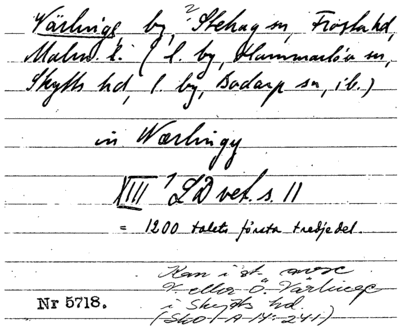 Värlinge by, ² Stehag sn, Frosta hd,
Malm. l. ( l. by, Hammarlöv sn,
Skytts hd, l. by, Bodarp sn, ib.)
in Wærlingy
XIII ¹ LD vet. s. 11
= 1200 talets första tredjedel.
Kan i st. avse
V. eller Ö. Värlinge
i Skytts hd.
(SkO 1 A 14: 241.)
Nr 5718.